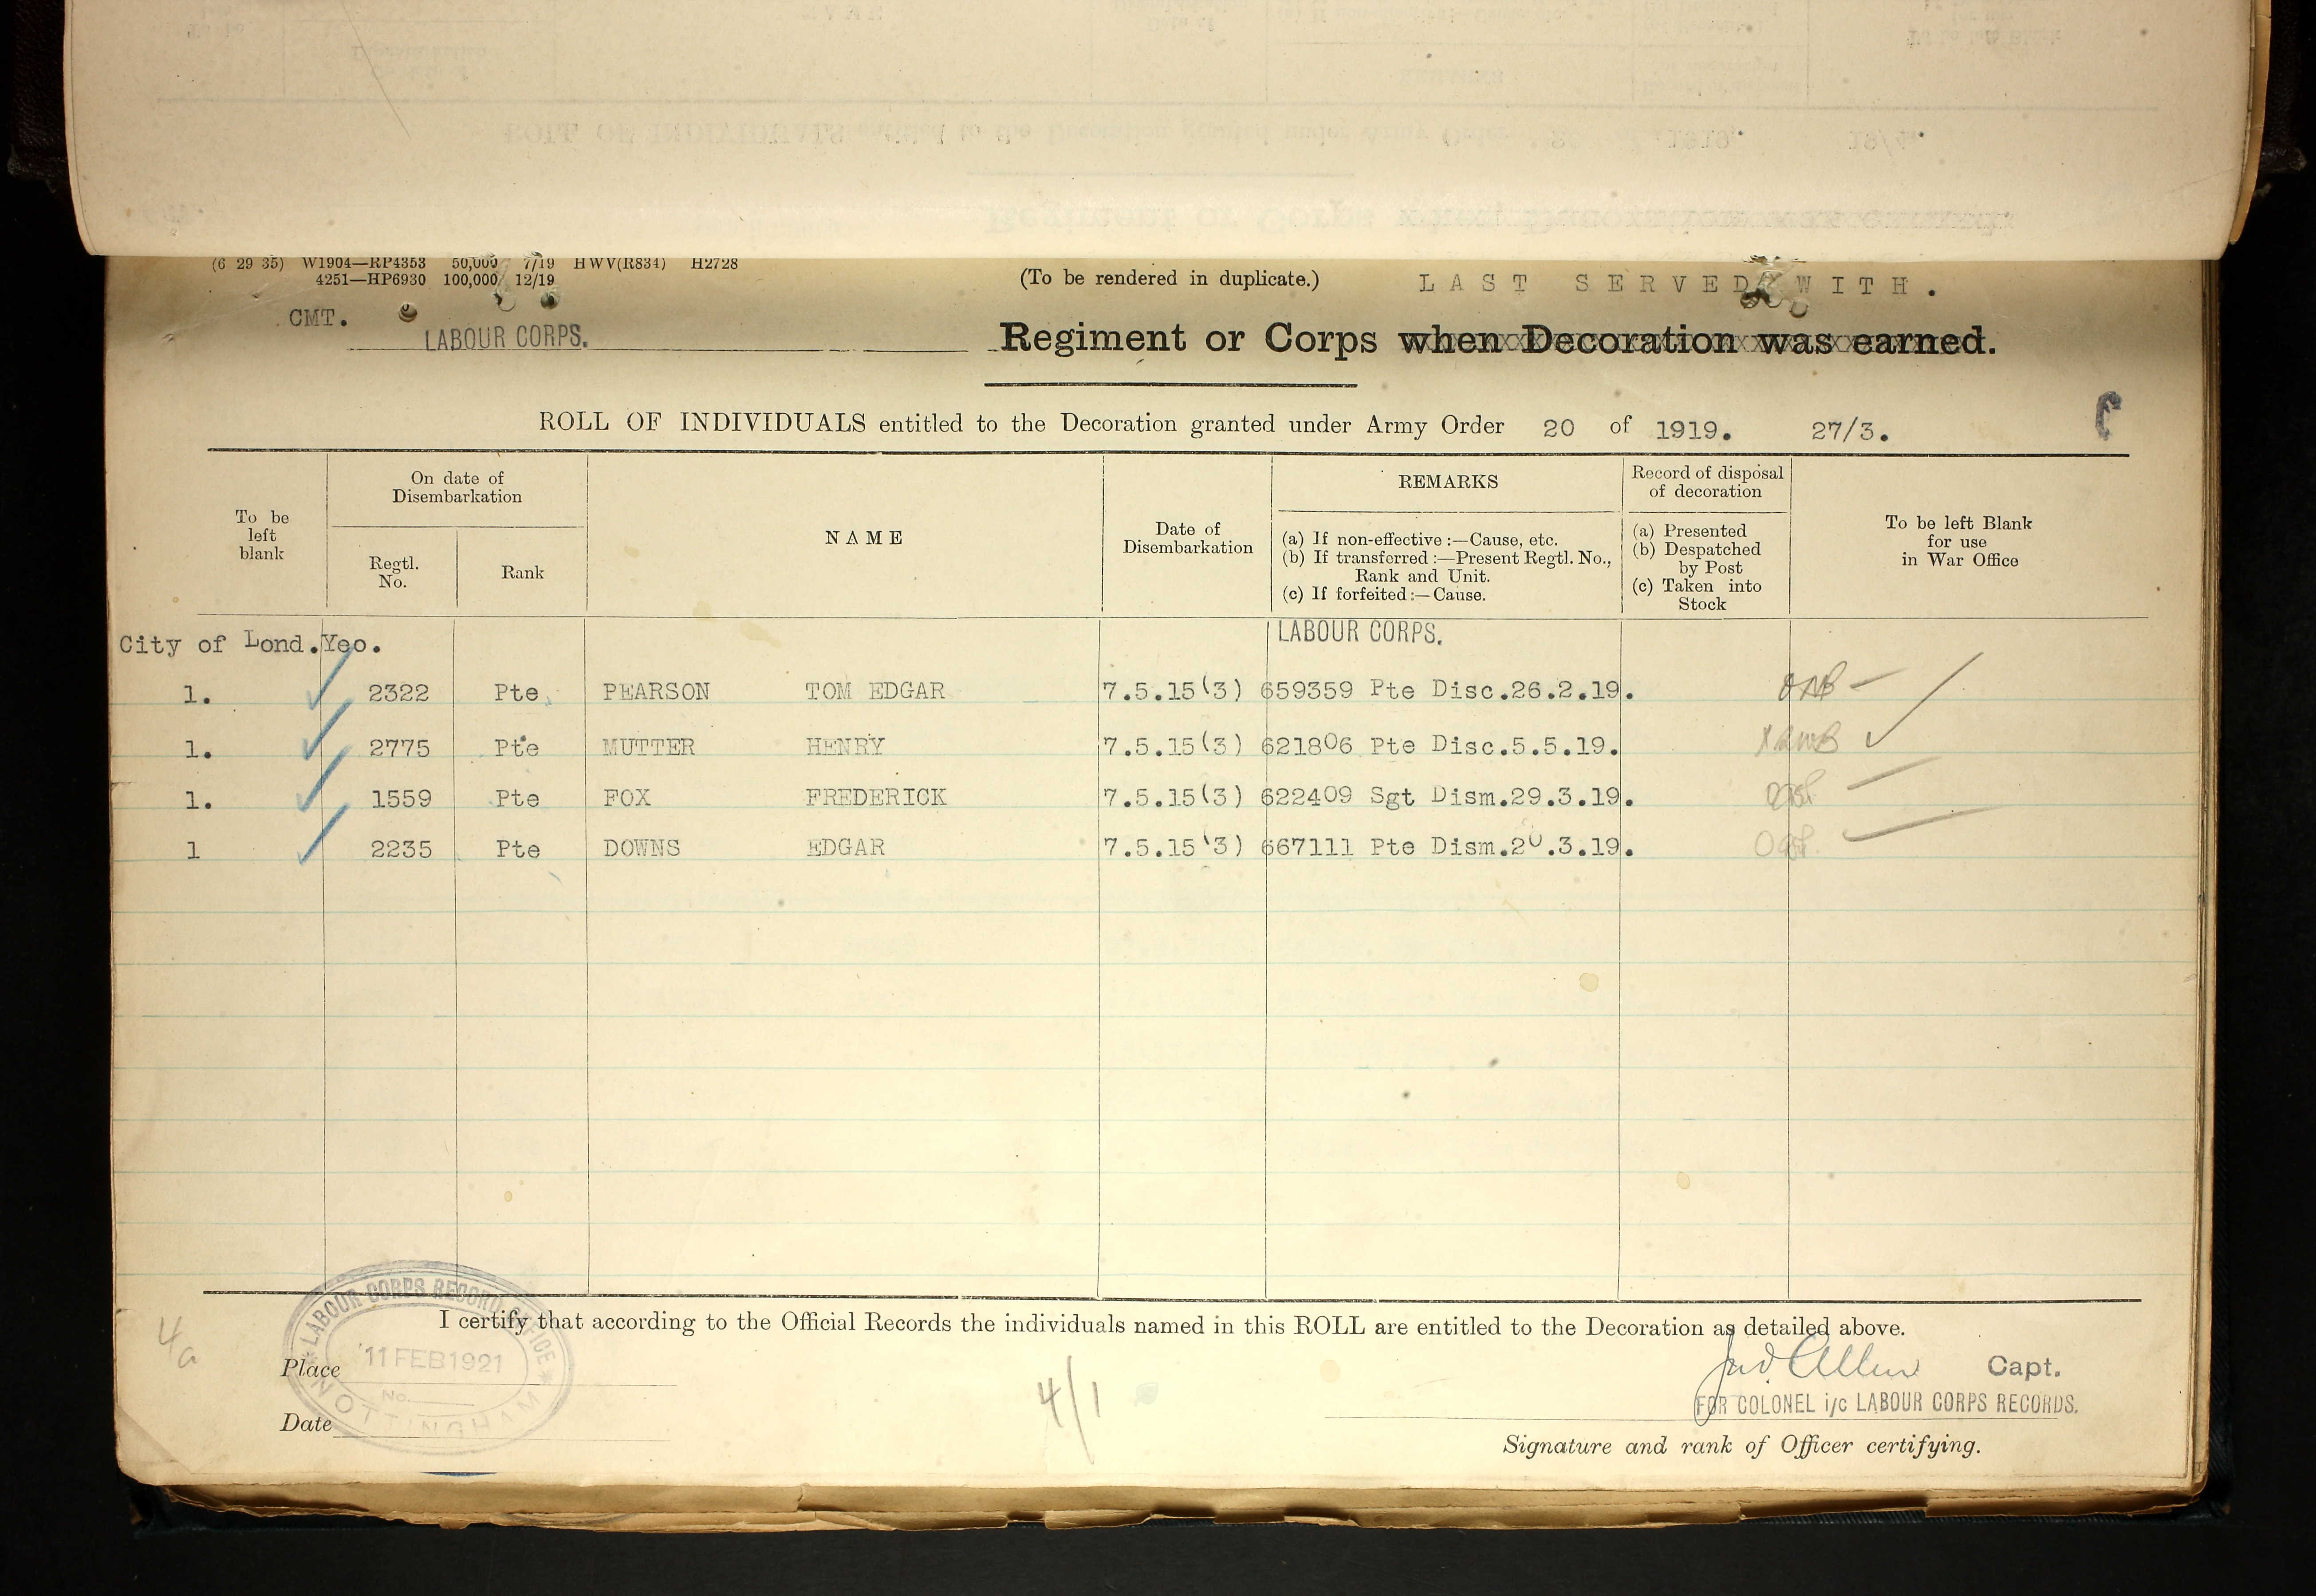 (6 29 35) W1904—RP4353 50,000 7/19 HWV(R834) H2728
4251—HP6930 100,000 12/19
(To be rendered in duplicate.) LAST SERVED WITH.
CMT.
LABOUR CORPS. Regiment or Corps when Decoration was earned.
ROLL OF INDIVIDUALS entitled to the Decoration granted under Army Order 20 of 1919. 27/3.
To be left blank
On date of Disembarkation
Regtl. No.
Rank
NAME
Date of Disembarkation
REMARKS
(a) If non-effective :—Cause, etc.
(b) If transferred :—Present Regtl. No., Rank and Unit.
(c) If forfeited :—Cause.
Record of disposal of decoration
(a) Presented
(b) Despatched by Post
(c) Taken into Stock
To be left Blank for use in War Office
LABOUR CORPS.
City of Lond.Yeo.
1. 2322 Pte PEARSON TOM EDGAR 7.5.15(3) 659359 Pte Disc.26.2.19.
1. 2775 Pte MUTTER HENRY 7.5.15(3) 621806 Pte Disc.5.5.19.
1. 1559 Pte FOX FREDERICK 7.5.15(3) 622409 Sgt Dism.29.3.19.
1 2235 Pte DOWNS EDGAR 7.5.15(3) 667111 Pte Dism.20.3.19.
LABOUR CORPS RECORD OFFICE
11 FEB 1921
No.
NOTTINGHAM
I certify that according to the Official Records the individuals named in this ROLL are entitled to the Decoration as detailed above.
4a
Place
4/1
Allen Capt.
FOR COLONEL i/c LABOUR CORPS RECORDS.
Date
Signature and rank of Officer certifying.